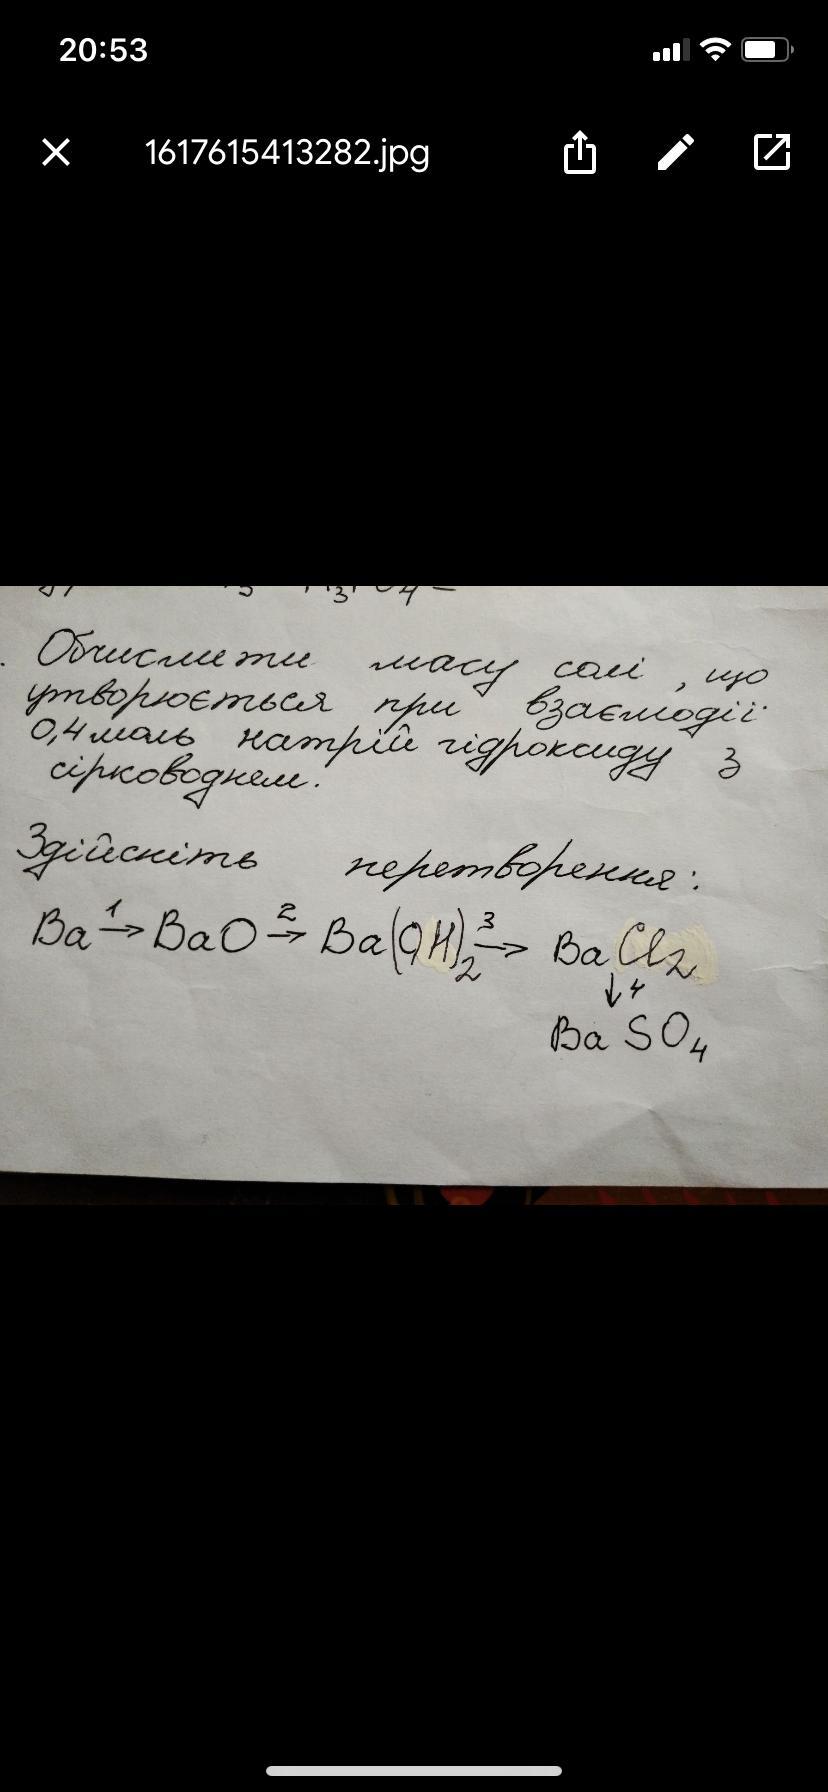 20:53
1617615413282.jpg
Обчислити масу солі, що
утворюється при взаємодії
0,4 моль натрій гідроксиду з
сірководнем.
Здійсніть перетворення:
Ba 1→ BaO 2→ Ba(OH)2 3→ BaCl2
↓4
BaSO4